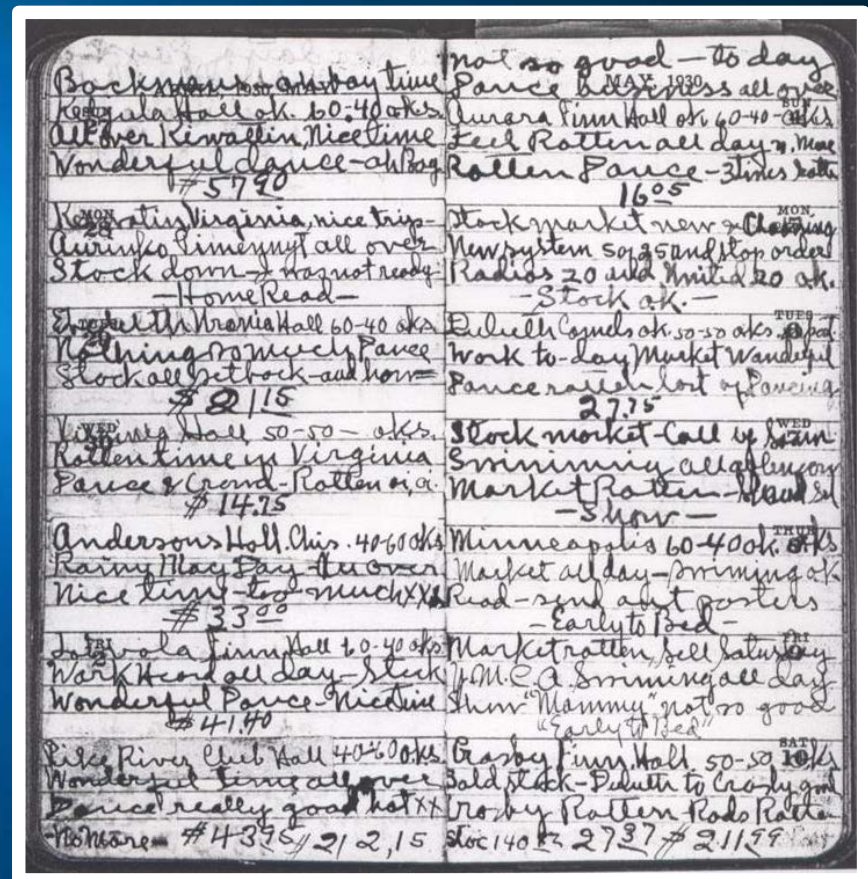 Backmens ok bay time
Kettula Hall ok. 60-40 oks.
All over Kiwatin, Nice time
Wonderful dance - ah Bag
$57.90
MON
28
Kewatin, Virginia, nice trip-
Aurinko Pimennyt all over
Stock down - I was not ready
- Home Read -
Urania Hall 60-40 oks
Nothing so much, Dance
Stock all set back - and how -
$21.15
WED
Virginia Hall 50-50 - oks.
Rotten time in Virginia
Dance & Crowd - Rotten
$14.75
Andersons Hall. Chis. 40-60 oks
Rainy May Day - all over
Nice time - too much xx
$33.00
FRI
2
Finn Hall 60-40 oks
Work Hard all day - Stock
Wonderful Dance - Nice time
$41.40
Pike River Club Hall 40-60 oks
Wonderful time all over
Dance really good hot xx
No More - $43.95 $212,15
not so good - to day
MAY 1930
Dance business all over
SUN
Aurora Finn Hall ok 60-40 - oks
Feel Rotten all day
Rotten Dance - 3 times Rotten
16.05
MON
Stock market new
New system 50, 25 and stop order
Radios 20 and United 20 ok.
- Stock ok. -
TUES
Duluth Camels ok. 50-50 oks.
Work to-day Market Wonderful
Dance rotten lost of Dancing
27.75
WED
Stock market - Call up
Swimming all
Market Rotten -
- Show -
THUR
Minneapolis 60-40 ok. oks
Market all day - Swiming ok
Read - send out posters
- Early to Bed -
FRI
Market rotten, Sell Saturday
Y.M.C.A Swiming all day
Show "Mammy" not so good
"Early to Bed"
SAT
10
Crosby Finn. Hall. 50-50 oks
Sold stock - Duluth to Crosby good
Crosby Rotten - Rods Rotten
Stoc 140 27.37 $211.99